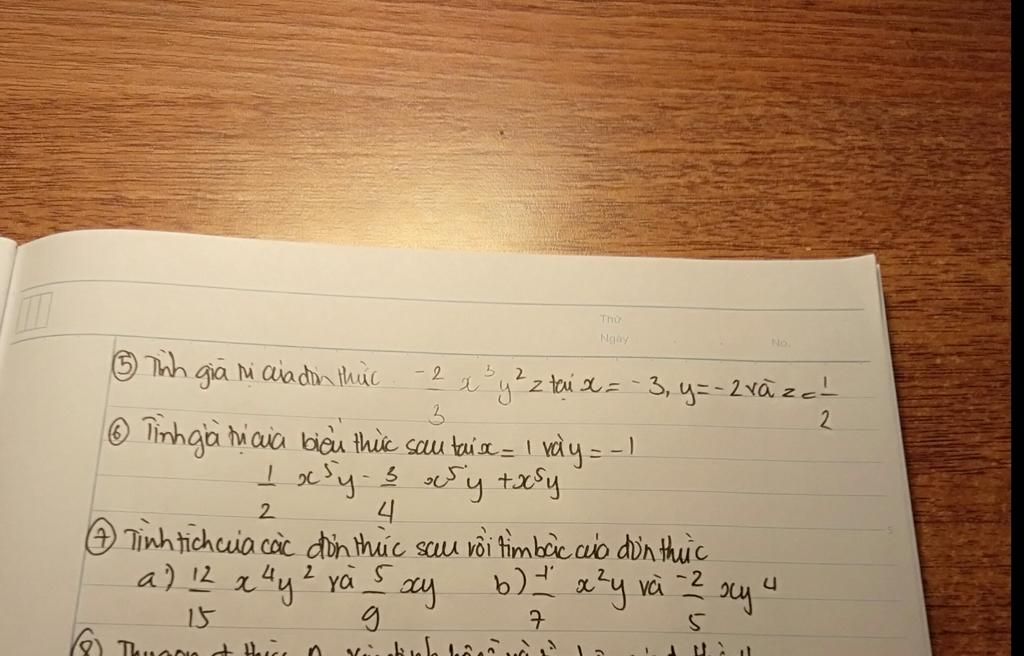 Thứ
Ngày No.
⑤ Tính giá trị của đơn thức -2/3 x³y²z tại x = -3, y = -2 và z = 1/2
⑥ Tính giá trị của biểu thức sau tại x = 1 và y = -1
1/2 x⁵y - 3/4 x⁵y + x⁵y
⑦ Tính tích của các đơn thức sau rồi tìm bậc của đơn thức
a) 12/15 x⁴y² và 5/9 xy b) -1/7 x²y và -2/5 xy⁴
⑧